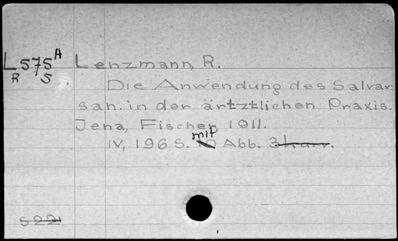 L 575 A Lenzmann, R.
R 5
Die Anwendung des Salvar
san. in der ärtztlichen Praxis.
Jena, Fischer 1911.
IV, 196 S. mit Abb.
522